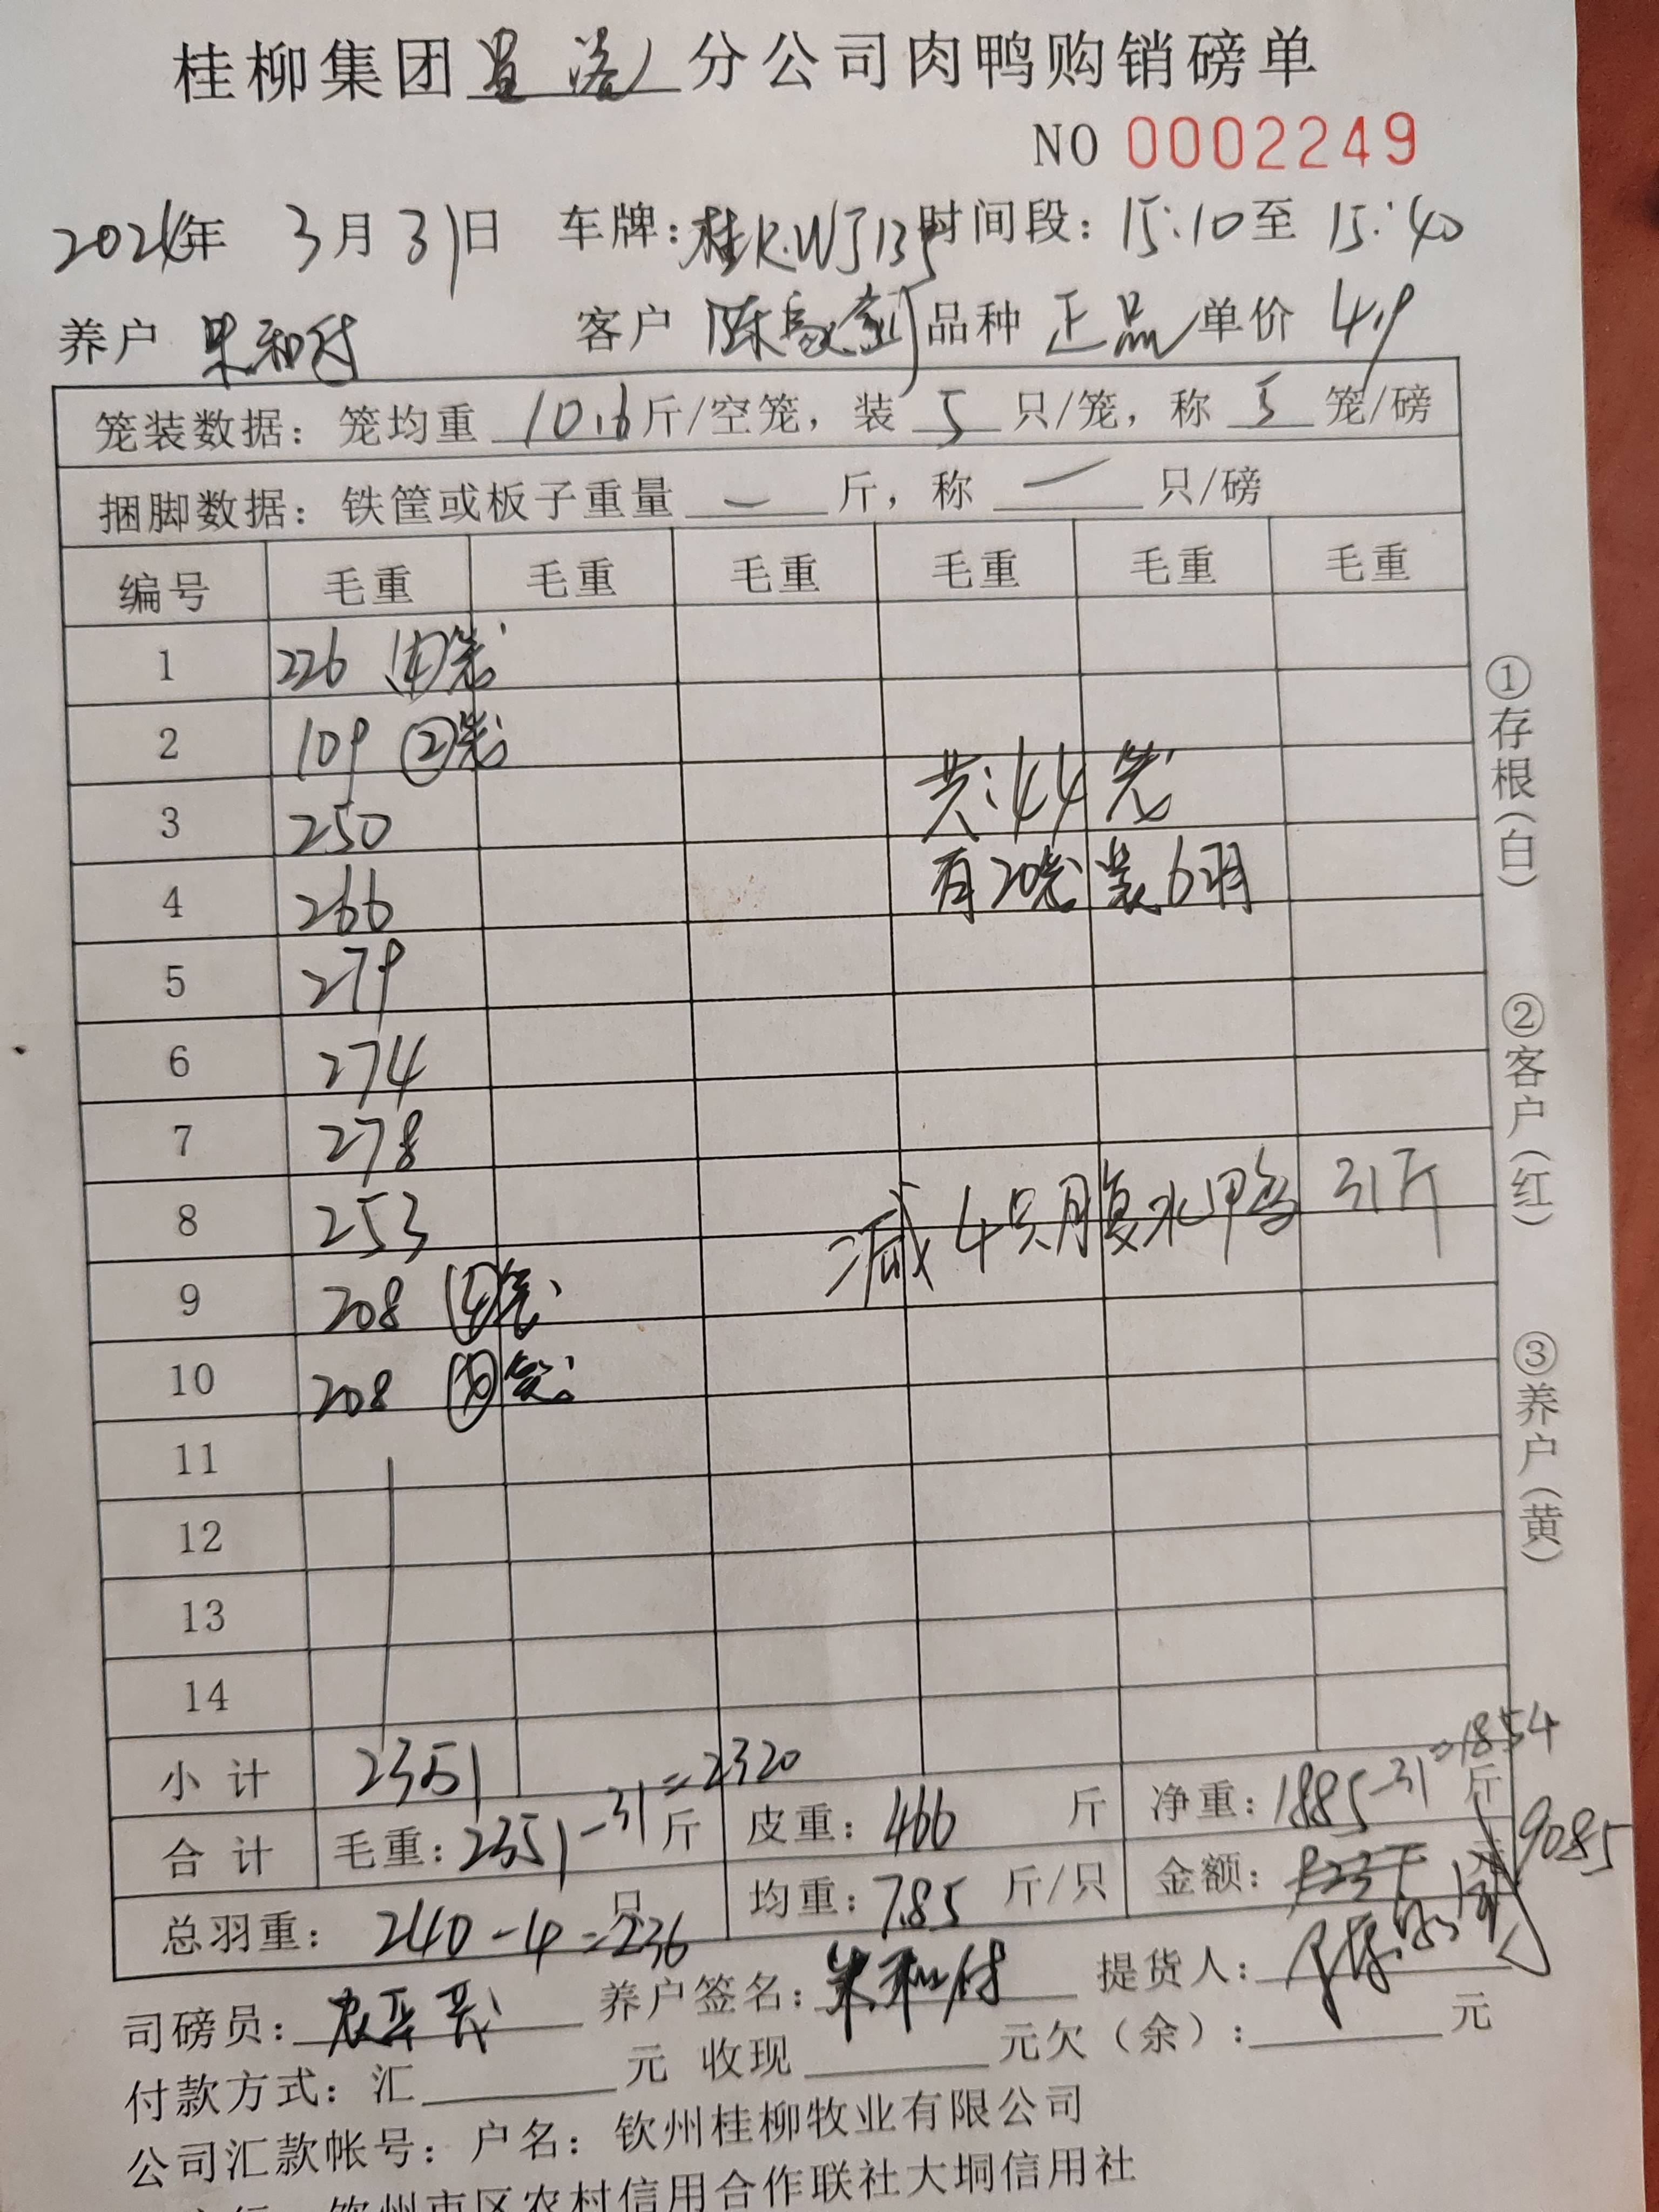 桂柳集团 分公司肉鸭购销磅单
NO 0002249
2024年 3月31日 车牌: 时间段: 15:10至 15:40
养户 客户 陈 品种 正品 单价 4.9
笼装数据: 笼均重 10.6斤/空笼, 装 5 只/笼, 称 5 笼/磅
捆脚数据: 铁筐或板子重量 — 斤, 称 — 只/磅
编号 毛重 毛重 毛重 毛重 毛重 毛重
1 226 ④笼
2 109 ②笼
共:44笼
3 250
有20笼装6羽
4 266
5 279
6 274
7 278
8 253
减4只腹水鸭 31斤
9 208 ④笼
10 208 ④笼
11
12
13
14
小计 2351
合计 毛重: 2351-31=2320 斤 皮重: 466 斤 净重: 1885-31=1854 斤
总羽重: 240-4=236 只 均重: 7.85 斤/只 金额: 元 9085
司磅员: 养户签名: 朱和付 提货人:
付款方式: 汇 元 收现 元欠(余): 元
公司汇款帐号: 户名: 钦州桂柳牧业有限公司
钦州市区农村信用合作联社大垌信用社
①存根(白) ②客户(红) ③养户(黄)